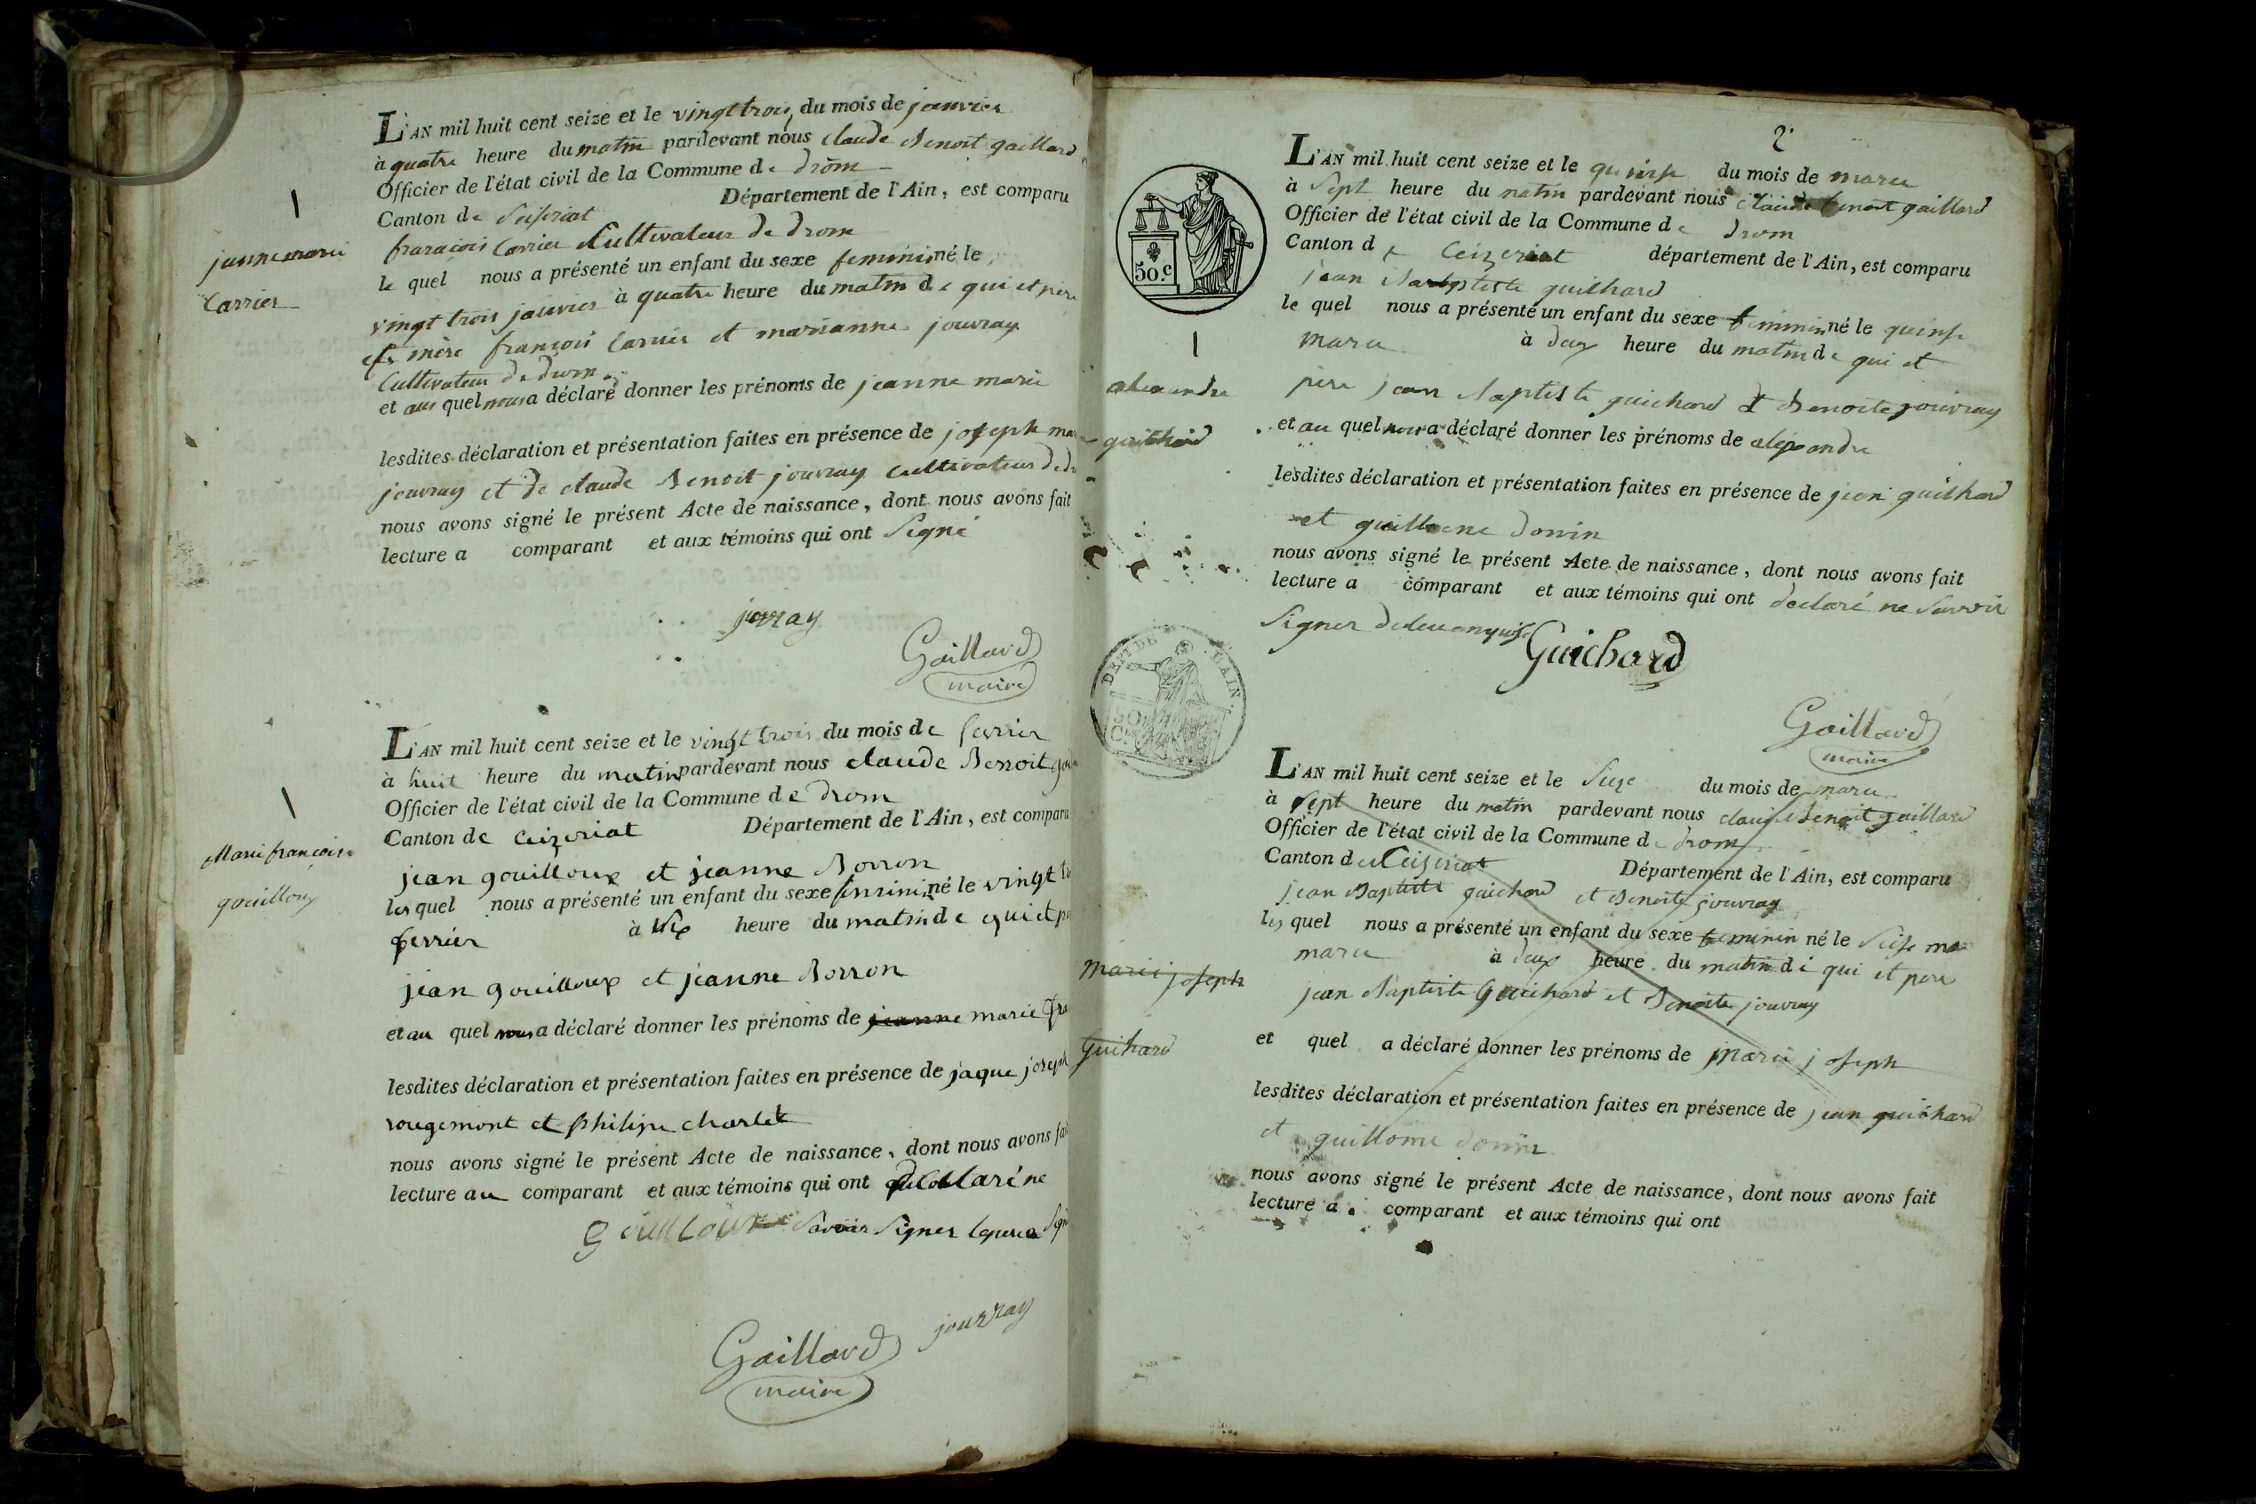 L'AN mil huit cent seize et le vingt trois du mois de janvier
à quatre heure du matin pardevant nous claude Benoit gaillard
Officier de l'état civil de la Commune de drom
Canton de Seiseriat Département de l'Ain, est comparu
francois Carrier Cultivateur de drom
le quel nous a présenté un enfant du sexe feminin né le
vingt trois janvier à quatre heure du matin de qui et pere
et mère françois Carrier et marianne jouvray
Cultivateur de drom
et au quel nous a déclaré donner les prénoms de jeanne marie
lesdites déclaration et présentation faites en présence de joseph mar
jouvray et de claude Benoit jouvray cultivateur de dr
nous avons signé le présent Acte de naissance, dont nous avons fait
lecture a comparant et aux témoins qui ont Signé
jouvray
Gaillard
maire
1
jannemarie
Carrier
L'AN mil huit cent seize et le vingt trois du mois de fevrier
à huit heure du matin pardevant nous claude Benoit ga
Officier de l'état civil de la Commune de Drom
Canton de Ceizeriat Département de l'Ain, est comparu
jean gouilloux et jeanne Borron
les quel nous a présenté un enfant du sexe feminin né le vingt tr
fevrier à six heure du matin de qui et pe
jean gouilloux et jeanne Borron
et au quel nous a déclaré donner les prénoms de jeanne marie fra
lesdites déclaration et présentation faites en présence de jaque joseph
rougemont et philipe charlet
nous avons signé le présent Acte de naissance, dont nous avons fai
lecture au comparant et aux témoins qui ont declaré ne
gouilloux Savoir Signer le pere a Sign
Gaillard jouvray
maire
1
Marie françoise
gouilloux
2
L'AN mil huit cent seize et le quinse du mois de mars
à Sept heure du matin pardevant nous claude benoit gaillard
Officier de l'état civil de la Commune de drom
Canton de Ceizeriat département de l'Ain, est comparu
jean Baptiste guilhard
le quel nous a présenté un enfant du sexe feminin né le quinse
mars à deux heure du matin de qui et
pere jean Baptiste guichard et Benoite jouvray
et au quel nous a déclaré donner les prénoms de alexandre
lesdites déclaration et présentation faites en présence de jean guilhard
et guillome donin
nous avons signé le présent Acte de naissance, dont nous avons fait
lecture a comparant et aux témoins qui ont declaré ne Savoir
Signer de
Guichard
Gaillard
maire
50.c
1
alexandre
guichard
DEPT DE L'AIN.
50
C.
L'AN mil huit cent seize et le Seize du mois de mars
à Sept heure du matin pardevant nous claude Benoit gaillard
Officier de l'état civil de la Commune de drom
Canton de Ceiseriat Département de l'Ain, est comparu
jean Baptiste guichard et Benoite jouvray
les quel nous a présenté un enfant du sexe feminin né le Seise ma
mars à deux heure du matin de qui et pere
jean Baptiste Guichard et Benoite jouvray
et quel a déclaré donner les prénoms de marie joseph
lesdites déclaration et présentation faites en présence de jean guichard
et guillome donin
nous avons signé le présent Acte de naissance, dont nous avons fait
lecture a comparant et aux témoins qui ont
marie joseph
Guihard